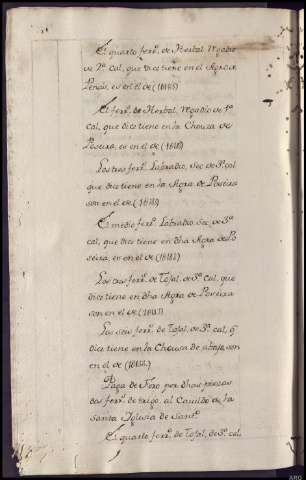 El quarto ferr.º de Herbal Regadio
de 2.ª cal, que dice tiene en el Agra de
es en el de
El ferr.º de Herbal, Regadio de 1.ª
cal, que dice tiene en la Chousa de
Poseira, es en el de
Los tres ferr.s Labradio, sec.º de 2.ª cal
que dice tiene en la Agra de Poseira
son en el de
El medio ferr.º Labradio sec.º de 3.ª
cal, que dice tiene en dha Agra de Po
seira, es en el de
Los tres ferr.s de Tojal, de 3.ª cal, que
dice tiene en dha Agra de Poseira
son en el de
Los seis ferr.s de Tojal, de 3.ª cal, q
dice tiene en la Chousa de abajo, son
en el de
Paga de Foro por dhas piezas
dos ferr.s de trigo, al Cavildo de la
Santa Iglesia de Sant.º
El quarto ferr.º de Tojal, de 3.ª cal,